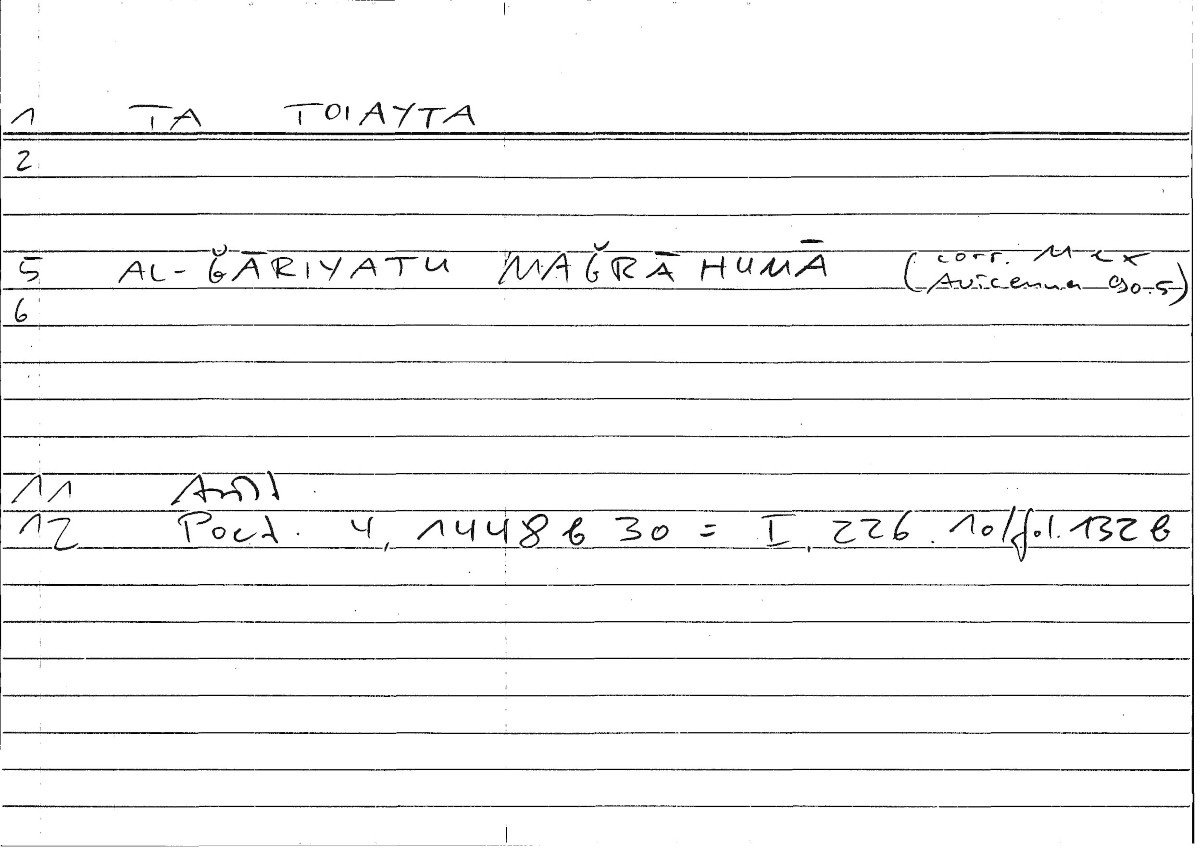 1 ΤΑ ΤΟΙΑΥΤΑ
2
5 AL-ǦĀRIYATU MAǦRĀHUMĀ (corr. ex Avicenna 90.5)
6
11 Arist.
12 Poet. 4, 1448 b 30 = I, 226.10/fol. 132 b